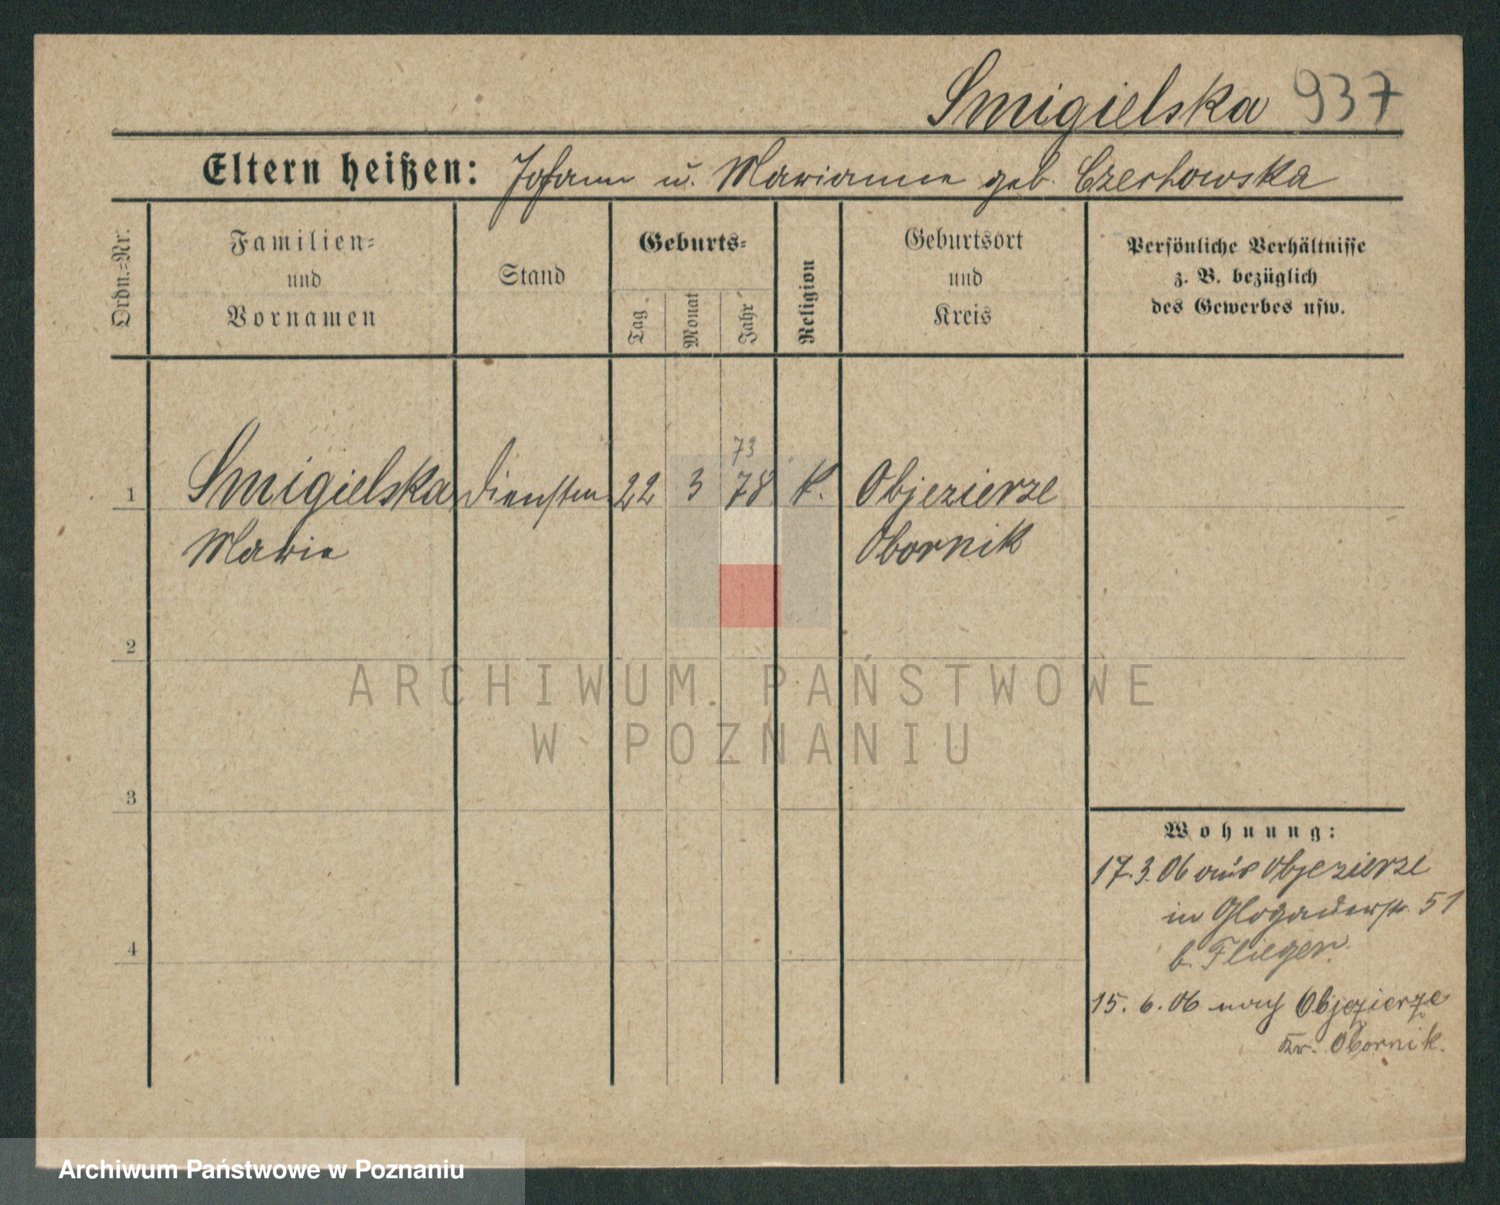 Smigielska 937
Eltern heißen: Johann u. Marianna geb. Czechowska
Ordn.-Nr.
Familien-
und
Vornamen
Stand
Geburts-
Tag
Monat
Jahr
Religion
Geburtsort
und
Kreis
Persönliche Verhältnisse
z. B. bezüglich
des Gewerbes usw.
73
1 Smigielska 22 3 78 k. Objezierze
Marie Obornik
2
3
4
ARCHIWUM PAŃSTWOWE
W POZNANIU
Wohnung:
17.3.06 aus Objezierze
in Glogauerstr. 51
b. Flieger.
15.6.06 nach Objezierze
Kr. Obornik.
Archiwum Państwowe w Poznaniu